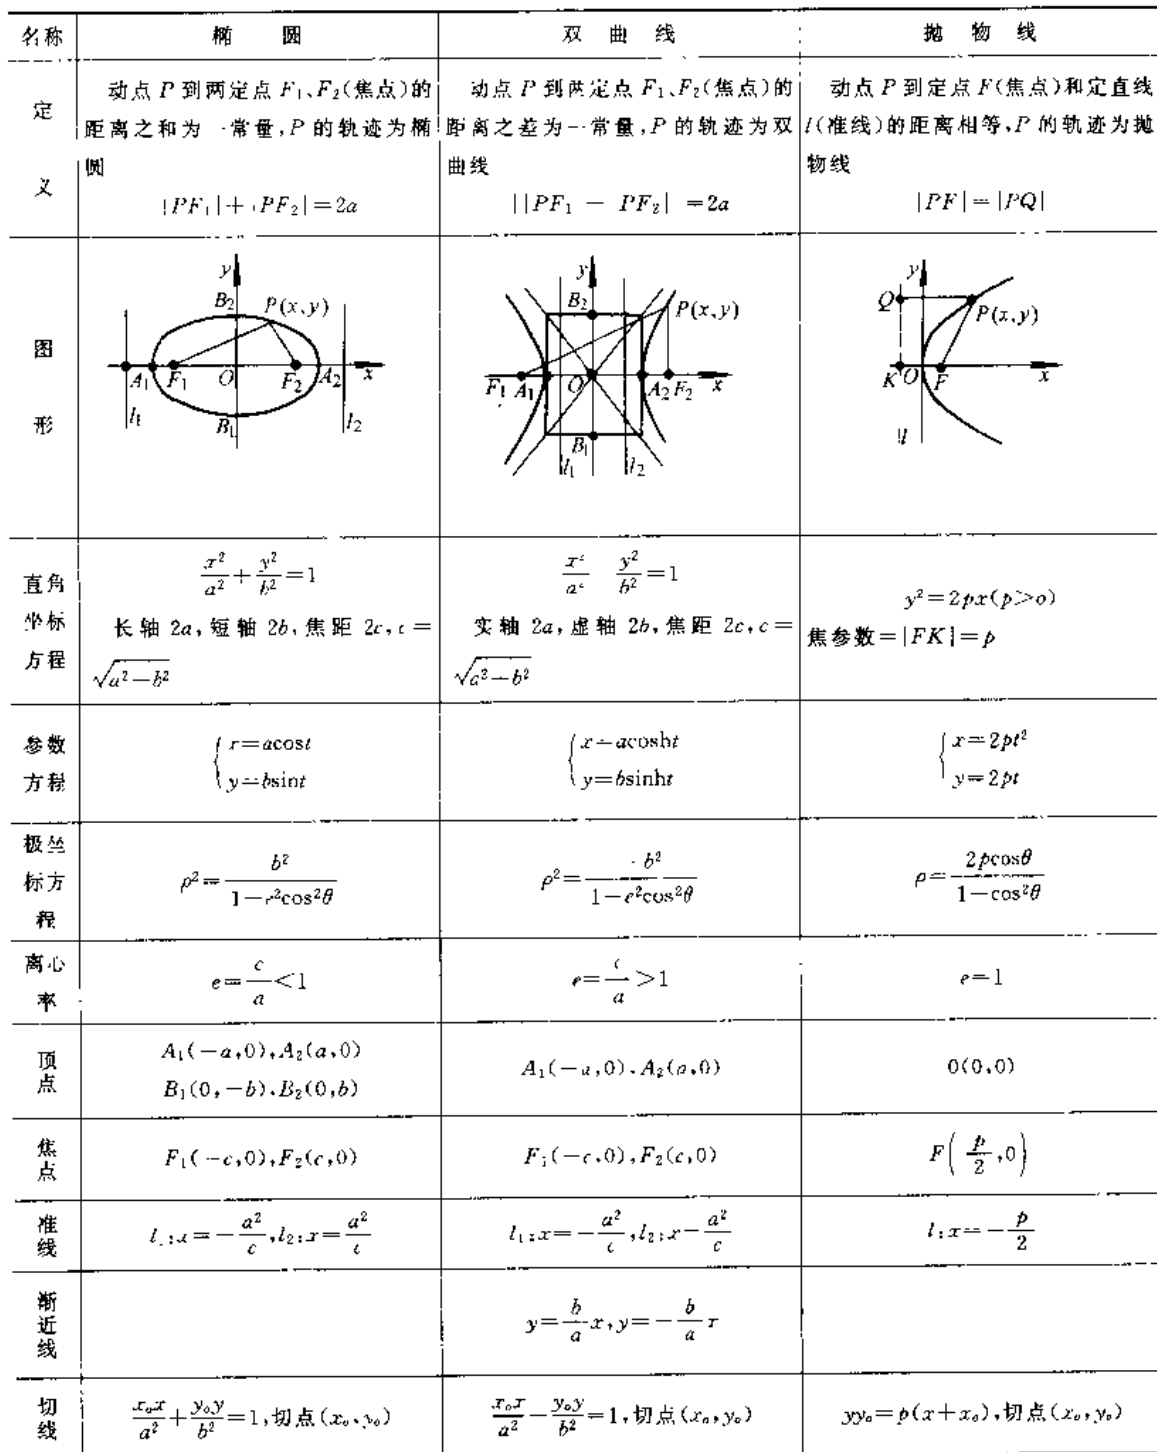 名称 椭 圆 双 曲 线 抛 物 线
定义
动点 P 到两定点 F₁、F₂(焦点)的
距离之和为一常量,P 的轨迹为椭
圆
|PF₁|+|PF₂|=2a
动点 P 到两定点 F₁、F₂(焦点)的
距离之差为一常量,P 的轨迹为双
曲线
||PF₁ − PF₂| =2a
动点 P 到定点 F(焦点)和定直线
l(准线)的距离相等,P 的轨迹为抛
物线
|PF|=|PQ|
图形
y
B₂ P(x,y)
A₁ F₁ O F₂ A₂ x
l₁ B₁ l₂
y
B₂ P(x,y)
F₁ A₁ O A₂ F₂ x
B₁
l₁ l₂
y
Q P(x,y)
K O F x
l
直角
坐标
方程
x²/a²+y²/b²=1
长轴 2a,短轴 2b,焦距 2c,c=
√(a²−b²)
x²/a² y²/b²=1
实轴 2a,虚轴 2b,焦距 2c,c=
√(a²−b²)
y²=2px(p>o)
焦参数=|FK|=p
参数
方程
x=acost
y=bsint
x=acosht
y=bsinht
x=2pt²
y=2pt
极坐
标方
程
ρ²=b²/(1−e²cos²θ)
ρ²=-b²/(1−e²cos²θ)
ρ=2pcosθ/(1−cos²θ)
离心
率
e=c/a<1
e=c/a>1
e=1
顶点
A₁(−a,0),A₂(a,0)
B₁(0,−b),B₂(0,b)
A₁(−a,0),A₂(a,0)
0(0,0)
焦点
F₁(−c,0),F₂(c,0)
F₁(−c,0),F₂(c,0)
F(p/2,0)
准线
l₁:x=−a²/c,l₂:x=a²/c
l₁:x=−a²/c,l₂:x−a²/c
l:x=−p/2
渐近线
y=b/a x,y=−b/a x
切线
x₀x/a²+y₀y/b²=1,切点(x₀,y₀)
x₀x/a²−y₀y/b²=1,切点(x₀,y₀)
yy₀=p(x+x₀),切点(x₀,y₀)